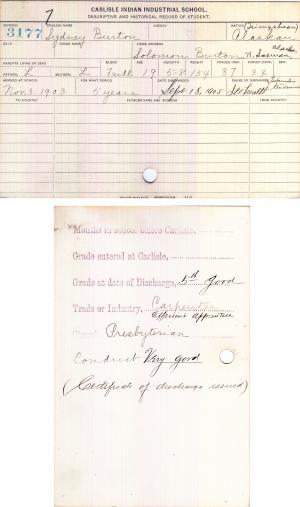 CARLISLE INDIAN INDUSTRIAL SCHOOL.
DESCRIPTIVE AND HISTORICAL RECORD OF STUDENT.
NUMBER ENGLISH NAME AGENCY NATION
3177 7 Sydney Burton (Tsimpshean) Alaskan
BAND INDIAN NAME HOME ADDRESS
Solomon Burton
PARENTS LIVING OR DEAD BLOOD AGE HEIGHT WEIGHT FORCED INSP. FORCED EXPR. SEX
FATHER L MOTHER L Full 19 5-8 154 37 34
ARRIVED AT SCHOOL FOR WHAT PERIOD DATE DISCHARGED CAUSE OF DISCHARGE
Nov. 3, 1903 5 years Sept 18, 1905
TO COUNTRY PATRONS NAME AND ADDRESS FROM COUNTRY
Months in school before Carlisle,
Grade entered at Carlisle,
Grade at date of Discharge, 5th Good
Trade or Industry, Carpenter
Efficient Apprentice
Presbyterian
Conduct Very good
(Certificate of discharge issued)